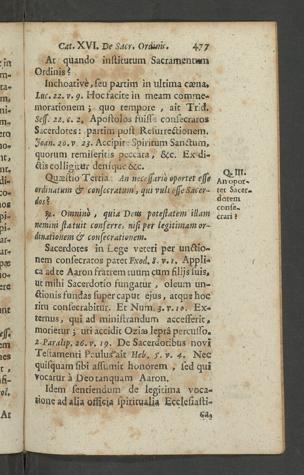 Cat. XVI. De Sacr. Ordinis. 477
At quando institutum Sacramentum
Ordinis?
Inchoativè, seu partim in ultima cæna,
Luc. 22. v. 9. Hoc facite in meam comme-
morationem; quo tempore, ait Trid.
Sess. 22. c. 2, Apostolos fuisse consecratos
Sacerdotes: partim post Resurrectionem.
Joan. 20. v. 23. Accipite Spiritum Sanctum,
quorum remiseritis peccata, &c. Ex di-
ctis colligitur densque &c.
Quæstio Tertia: An necessariò oportet esse
ordinatum & consecratum, qui vult esse Sacer-
dos?
Q. III.
An opor-
tet Sacer-
dotem
conse-
crari?
Omninò, quia Deus potestatem illam
nemini statuit conferre, nisi per legitimam or-
dinationem & consecrationem.
Sacerdotes in Lege veteri per unctio-
nem consecratos patet Exod. 8. v. 1. Appli-
ca ad te Aaron fratrem tuum cum filijs suis,
ut mihi Sacerdotio fungatur, oleum un-
ctionis fundas super caput ejus, atque hoc
ritu consecrabitur. Et Num. 3. v. 10. Ex-
ternus, qui ad ministrandum accesserit,
morietur; uti accidit Oziæ leprâ percusso.
2. Paralip. 26. v. 19. De Sacerdotibus novi
Testamenti Paulus ait Heb. 5. v. 4. Nec
quisquam sibi assumit honorem, sed qui
vocatur à Deo tanquam Aaron.
Idem sentiendum de legitima voca-
tione ad alia officia spiritualia Ecclesiasti-